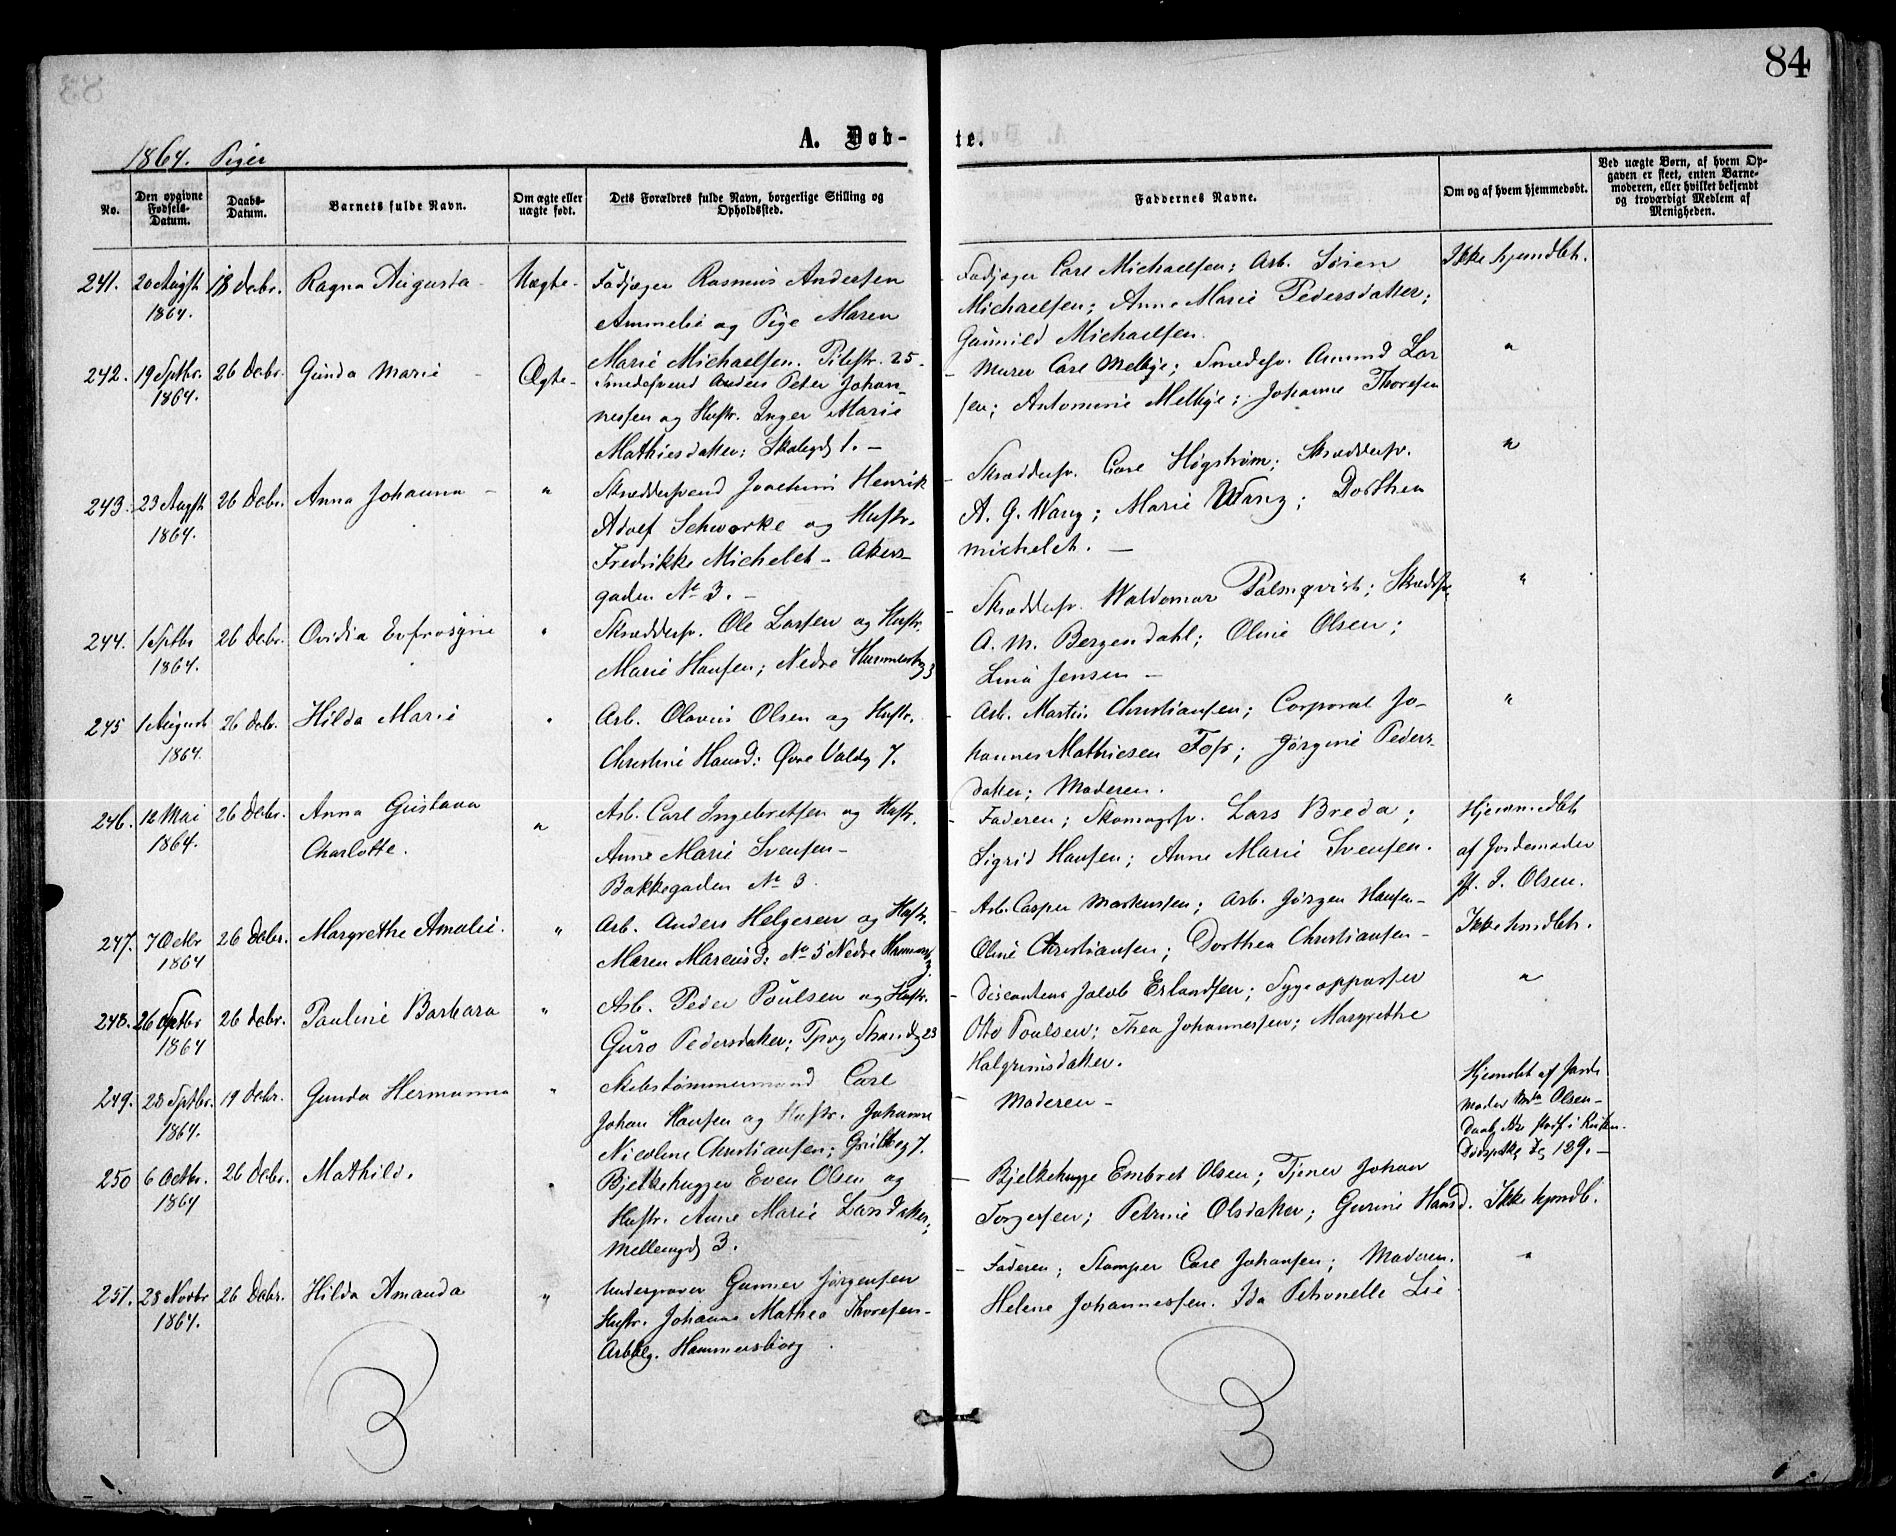 84
A. Døb-
te.
1864. Piger
No.
Den opgivne
Fødsels-
Datum.
Daabs-
Datum.
Barnets fulde Navn.
Om ægte eller
uægte født.
Dets Forældres fulde Navn, borgerlige Stilling og
Opholdssted.
Faddernes Navne.
Om og af hvem hjemmedøbt.
Ved uægte Børn, af hvem Op-
gaven er skeet, enten Barne-
moderen, eller hvilket bekjendt
og troværdigt Medlem af
Menigheden.
241. 20 Augst 18 Debr. Ragna Augusta - Uægte - Fodjæger Rasmus Andersen
1864.
Ammelie og Pige Maren
Marie Michaelsen. Pilestr. 25
- Fodjæger Carl Michaelsen; Arb. Søren
Michaelsen; Anne Marie Pedersdatter;
Gunnild Michaelsen.
Ikke hjemdbt.
242. 19 Sptbr. 26 Debr. Gunda Marie - Ægte - Smedesvend Anders Peter Johan-
1864.
nesen og Hustr. Inger Marie
Mathiesdatter; Skolegd 1. -
- Murer Carl Melbye; Smedesv. Amund Lar
sen; Antomine Melbye; Johanne Thoresen
"
243. 23 Augst 26 Debr. Anna Johanna - " Skræddersvend Joachim Henrik
1864.
Adolf Schworke og Hustr.
Fredrikke Michelet - Akers-
gaden No 3. -
- Skræddersv. Carl Høgstrøm; Skræddersv.
A. G. Wang; Marie Wang; Dorthea
Michelet. -
"
244. 1 Sptbr 26 Debr. Ovidia Eufrosyne " Skræddersv. Ole Larsen og Hustr.
1864.
Marie Hansen; Nedre Hammersbg 3
- Skræddersv. Waldemar Palmqvist; Skrædsv.
A. M. Bergendahl; Oline Olsen;
Lina Jensen -
"
245 1 August 26 Debr. Hilda Marie " Arb. Olavus Olsen og Hustr.
1864.
Christine Hansd: Øvre Voldg 7.
- Arb. Martin Christiansen; Corporal Jo-
hannes Mathiesen Foss; Jørgine Peders-
datter; Moderen.
"
246. 12 Mai 26 Debr. Anna Gustava " Arb. Carl Ingebretsen og Hustr.
1864.
Charlotte.
Anne Marie Svensen -
Bakkegaden No 3.
- Faderen; Skomagsv. Lars Breda;
Sigrid Hansen; Anne Marie Svensen.
Hjemmedbt
af Jordemoder
J. Olsen.
247. 7 Octbr 26 Debr. Margrethe Amalie. " Arb. Anders Helgesen og Hustr.
1864
Maren Marcusd: No 5 Nedre Hammersbg
- Arb. Casper Markussen; Arb. Jørgen Hansen -
Oline Christiansen; Dorthea Christiansen -
Ikke hmdbt.
248. 26 Sptbr 26 Debr. Pauline Barbara " Arb. Peder Poulsen og Hustr.
1864
Guro Pedersdatter; Tpvg Strandg 23
- Discantens Jacob Erlandsen; Sygeopvasser
Otto Poulsen; Thea Johannessen; Margrethe
Halgrimsdatter.
"
249. 28 Sptbr. 19 Debr. Gunda Hermanna " Skibstømmermand Carl
1864.
Johan Hansen og Hustr. Johanne
Nicoline Christiansen; Grubbeg 7.
- Moderen -
Hjemdbt af Jorde
moder Olsen -
250 6 Octbr. 26 Debr. Mathild. " Bjelkehugger Even Olsen og
1864
Hustr. Anne Marie Larsdatter;
Mellemgd 3.
- Bjelkehugge Embret Olsen; Tjener Johan
Torgersen; Petrine Olsdatter; Gurine Hansd.
Ikke hjemdb.
251. 28 Novbr 26 Debr. Hilda Amanda " Undergraver Gunner Jørgensen
1864.
Hustr. Johanne Mathea Thoresen -
Arbblg. Hammersborg.
- Faderen; Stamper Carl Johansen; Moderen.
Helene Johannessen. Ida Petronelle Lie
"